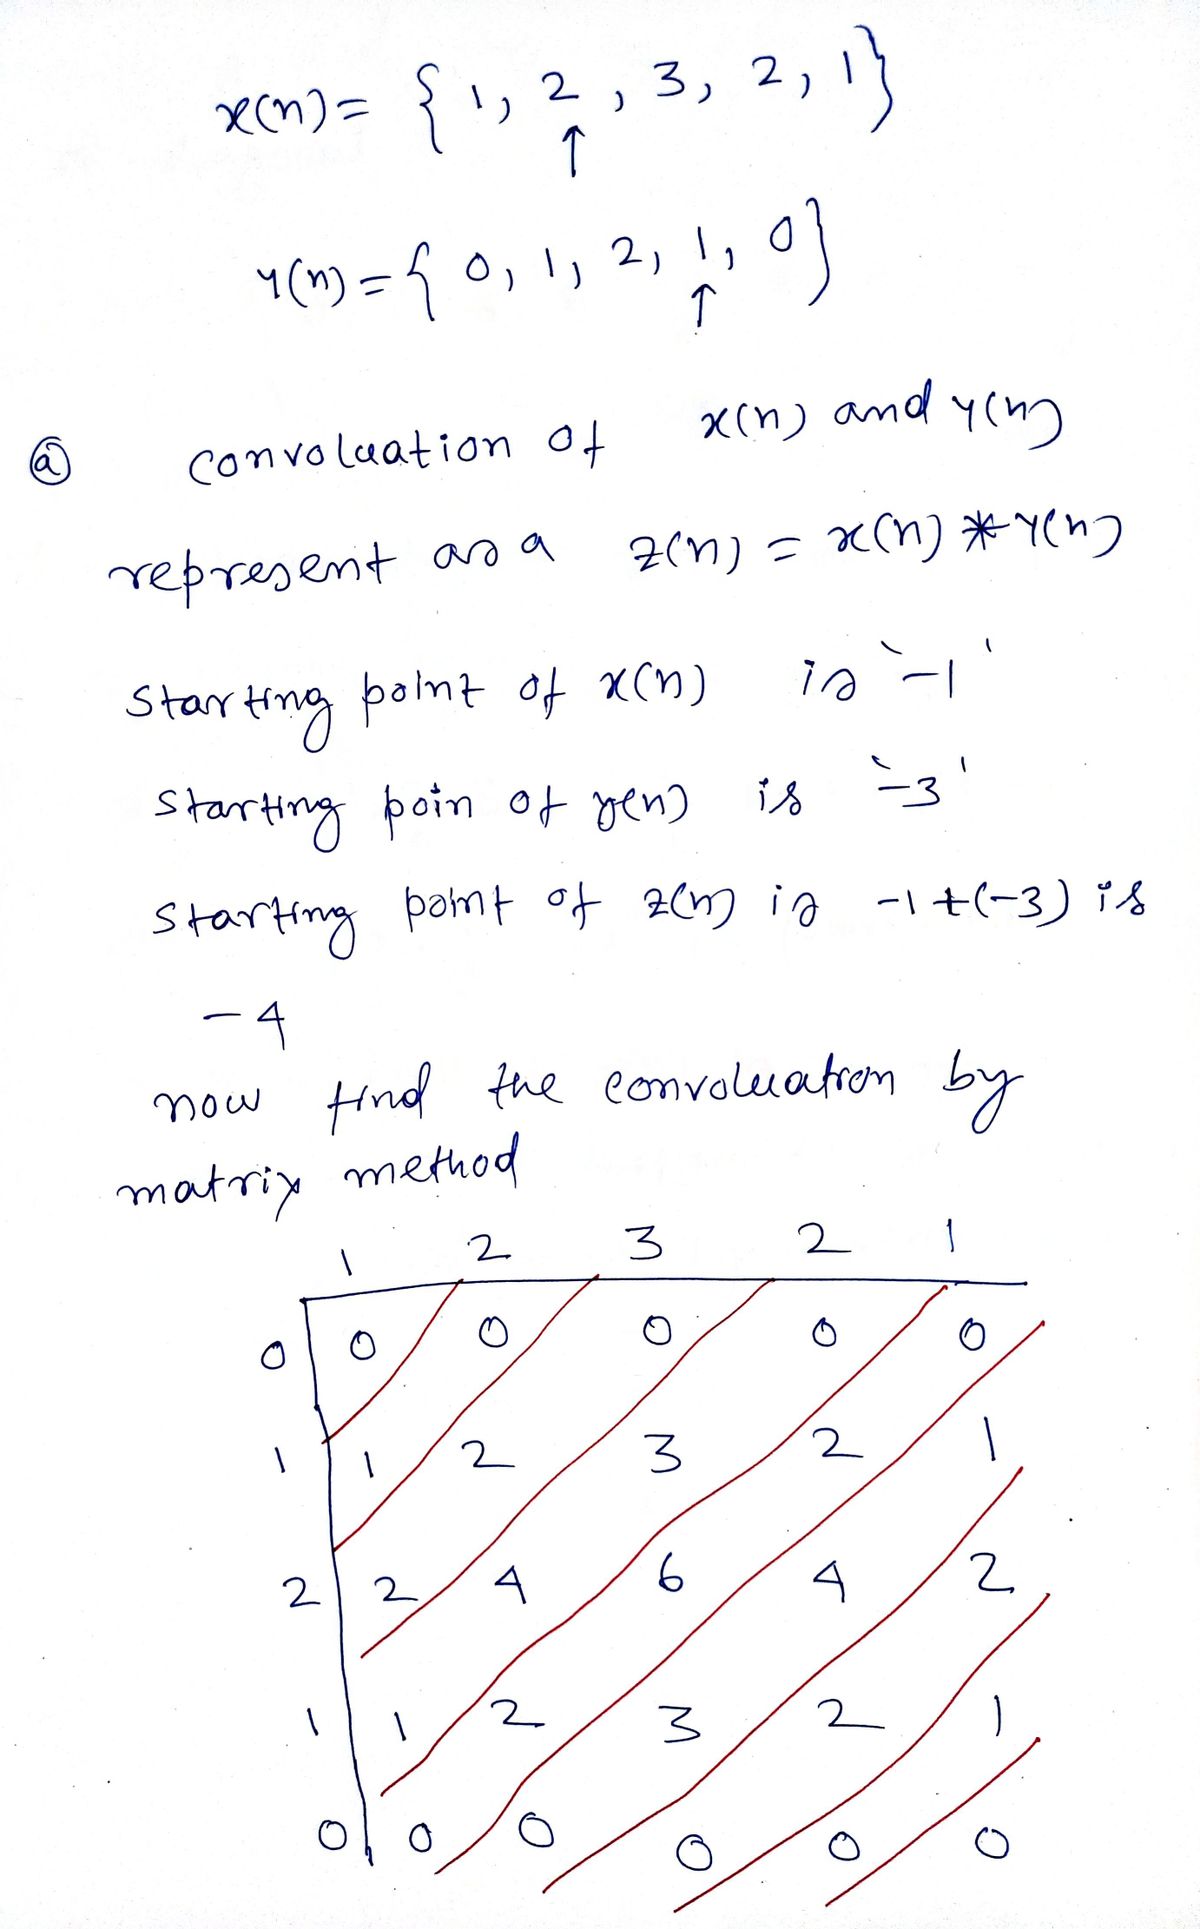 x(n) = { 1, 2, 3, 2, 1}
↑
y(n) = { 0, 1, 2, 1, 0}
↑
ⓐ convoluation of x(n) and y(n)
represent as a z(n) = x(n) * y(n)
starting point of x(n) is '-1'
starting poin of y(n) is '-3'
starting point of z(n) is -1+(-3) is
-4
now find the convoluation by
matrix method
1 2 3 2 1
0 0 0 0 0 0
1 1 2 3 2 1
2 2 4 6 4 2
1 1 2 3 2 1
0 0 0 0 0 0